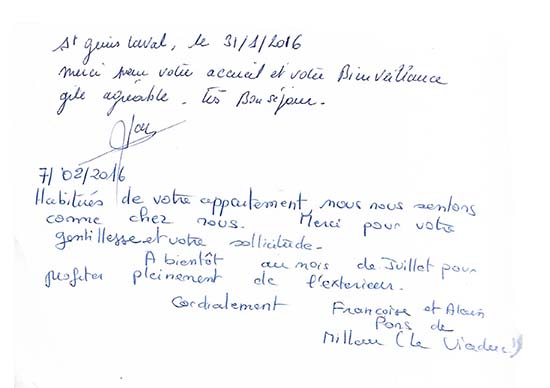 St genis Laval, le 31/1/2016
merci pour votre accueil et votre Bienveillance
gite agréable. Très Bon séjour.
7/02/2016
Habitués de votre appartement, nous nous sentons
comme chez nous. Merci pour votre
gentillesse et votre sollicitude.
A bientôt au mois de Juillet pour
profiter pleinement de l'exterieur.
Cordialement Françoise et Alain
Pons de
Millau (le Viaduc!)